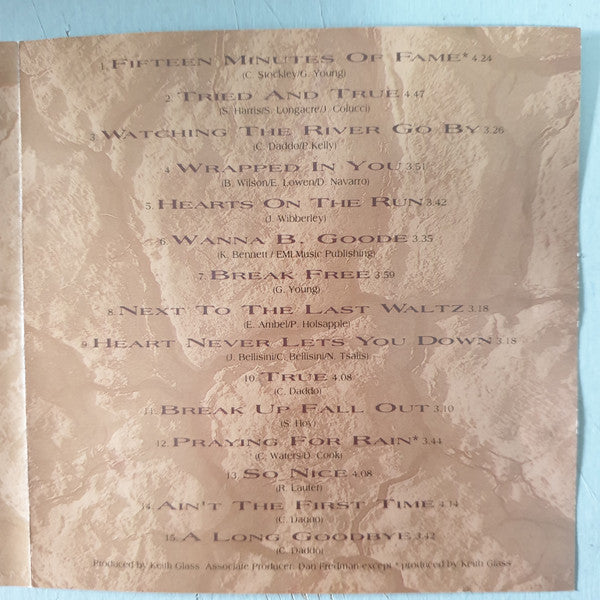 1. FIFTEEN MINUTES OF FAME* 4.24
(C. Stockley/G. Young)
2. TRIED AND TRUE 4.47
(S. Harris/S. Longacre/J. Colucci)
3. WATCHING THE RIVER GO BY 3.26
(C. Daddo/P.Kelly)
4. WRAPPED IN YOU 3.51
(B. Wilson/E. Lowen/D. Navarro)
5. HEARTS ON THE RUN 3.42
(J. Wibberley)
6. WANNA B. GOODE 3.35
(K. Bennett / EMI.Music Publishing)
7. BREAK FREE 3.59
(G. Young)
8. NEXT TO THE LAST WALTZ 3.18
(E. Ambel/P. Holsapple)
9. HEART NEVER LETS YOU DOWN 3.18
(J. Bellisini/C. Bellisini/N. Tsalis)
10. TRUE 4.08
(C. Daddo)
11. BREAK UP FALL OUT 3.10
(S. Hoy)
12. PRAYING FOR RAIN* 3.44
(C. Waters/D. Cook)
13. SO NICE 4.08
(R. Lauter)
14. AIN'T THE FIRST TIME 4.14
(C. Daddo)
15. A LONG GOODBYE 3.42
(C. Daddo)
Produced by Keith Glass Associate Producer: Dan Fredman except * produced by Keith Glass